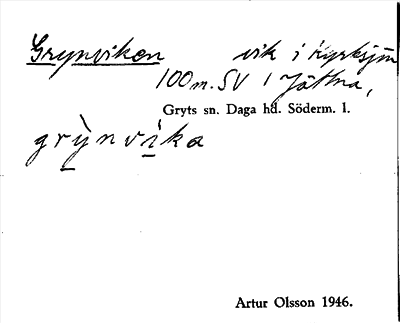 Grynviken vik i Kyrksjön
100 m. SV i Jättna,
Gryts sn. Daga hd. Söderm. l.
grỳnvìka
Artur Olsson 1946.